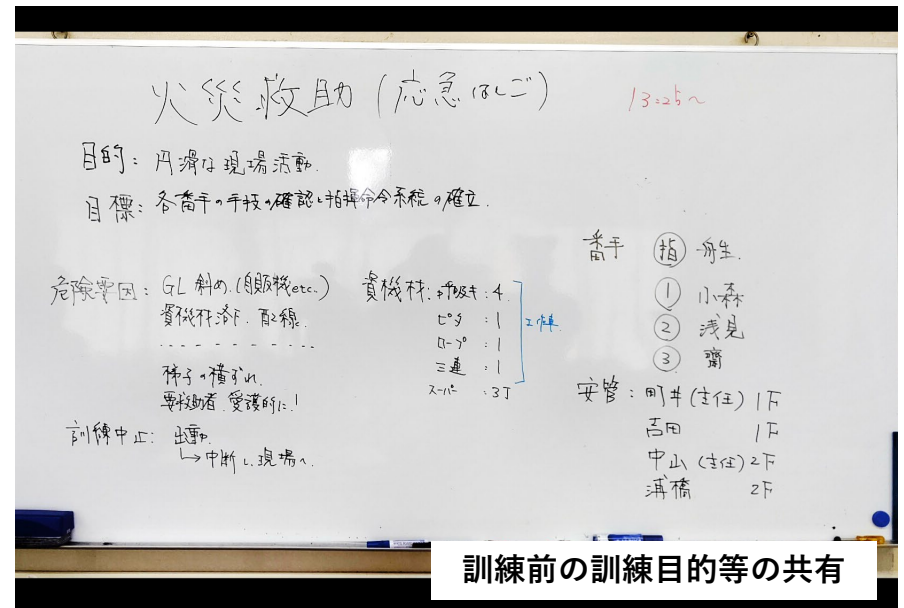 火災救助(応急はしご)
13:25~
目的: 円滑な現場活動.
目標: 各番手の手技の確認と指揮命令系統の確立.
危険要因: GL 斜め.(自販機etc.)
資機材落下. 配線.
梯子の横ずれ.
要救助者. 愛護的に!
訓練中止: 出動.
↳中断し、現場へ.
資機材: 呼吸キ: 4
ピタ : 1
ロープ : 1
三連 : 1
スーパー : 3丁
工作車
番手 指 舟生.
① 小森
② 浅見
③ 齋
安管: 町井(主任) 1F
吉田 1F
中山(主任) 2F
浦橋 2F
訓練前の訓練目的等の共有